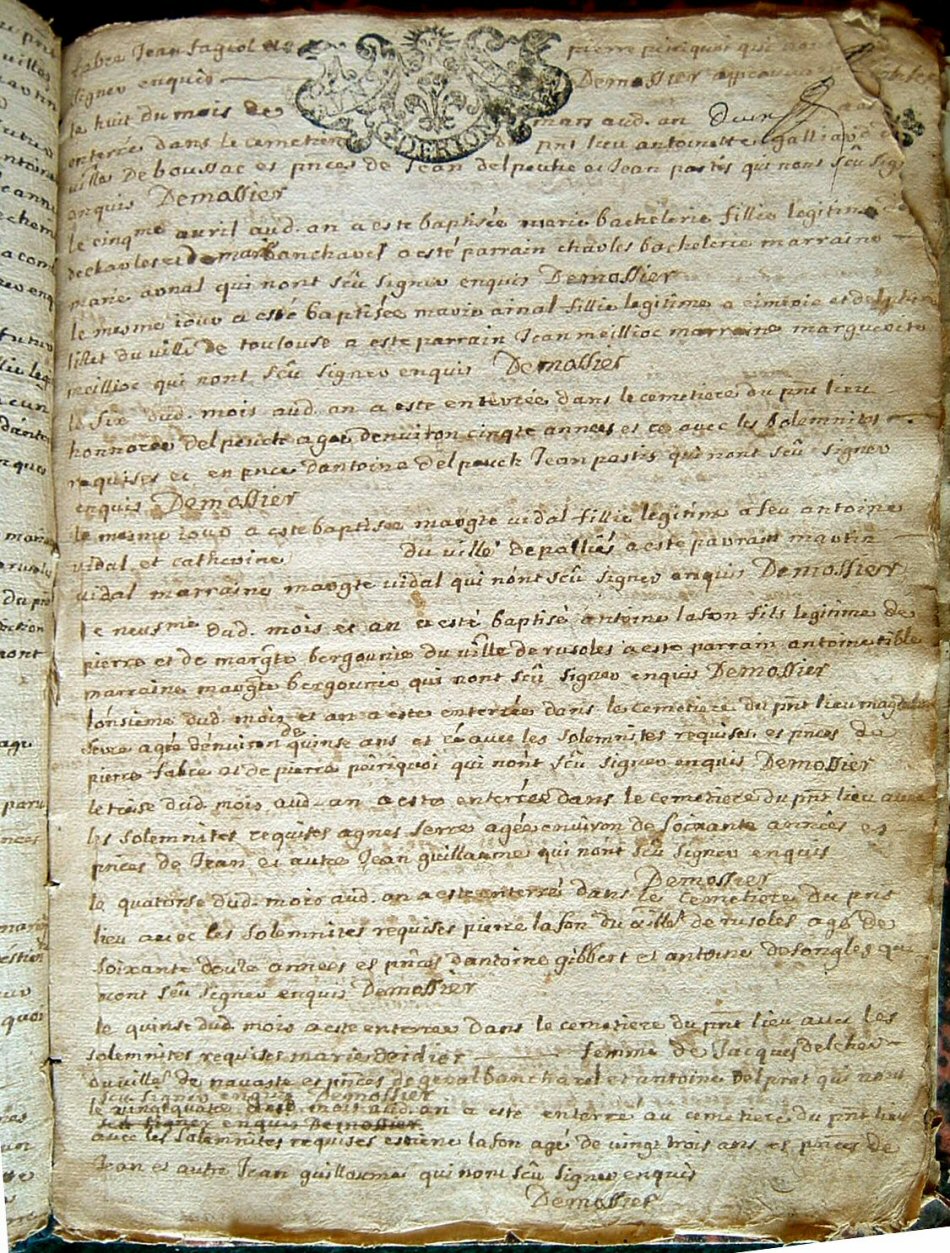 fabre Jean fagiol et pierre peiriquoi qui
signer enquis Demossier
le huit du mois de mars aud. an
enterrée dans le cemetiere du pnt lieu antoinette galliard
ville De boussac es pnces de Jean delpeuche et Jean pastis qui nont sçû sig
enquis Demossier
le cinqme avril aud. an a este baptisée marie bachelerie fillie legitime
de charles et de mar banchavel a esté parrain charles bachelerie marraine
marie arnal qui nont sçû signer enquis Demossier
le mesme iour a esté baptisée marie arnal fillie legitime a et delphine
du ville de toulouse a este parrain Jean meillioc marraine marguerite
meillioc qui nont sçû signer enquis Demossier
le six dud. mois aud. an a este enterrée dans le cemetiere du pnt lieu
honnorée delpeuch agée denuiron cinqte années et ce avec les solemnites
requises et en pnce dantoine delpeuch Jean pastis qui nont sçû signer
enquis Demossier
le mesme iour a este baptisée margte vidal fillie legitime a feu antoine
vidal et catherine du ville de palliés a este parrain martin
vidal marraine margte vidal qui nont sçû signer enquis Demossier
le neufme dud. mois et an a esté baptisé antoine lafon fils legitime de
pierre et de margte bergounie du ville de rusoles a este parrain antoine tible
marraine margte bergounie qui nont sçû signer enquis Demossier
lonsieme dud. mois et an a este enterrée dans le cemetiere du pnt lieu
agée denuiron de quinse ans et ce avec les solemnites requises es pnces de
pierre fabre et de pierre peiriquoi qui nont sçû signer enquis Demossier
le treise dud. mois aud. an a este enterrée dans le cemetiere du pnt lieu avec
les solemnites requises agnes serre agée environ de soixante années es
pnces de Jean et autre Jean guillaume qui nont sçû signer enquis
Demossier
le quatorse dud. mois aud. an a este enterré dans le cemetiere du pnt
lieu avec les solemnites requises pierre lafon du ville de rusoles agé de
soixante doute années es pnces dantoine gibbert et antoine desongles qui
nont sçû signer enquis Demossier
le quinse dud. mois a este enterrée dans le cemetiere du pnt lieu avec les
solemnites requises marie deidier femme de Jacques delcher
du ville de navaste es pnces de geral bancharel et antoine delprat qui nont
sçû signer enquis Demossier
le vingt quatre dud. mois aud. an a este enterré au cemetiere du pnt lieu
sçû signer enquis Demossier
avec les solemnites requises estiene lafon agé de vingt trois ans es pnces de
Jean et autre Jean guillaume qui nont sçû signer enquis
Demossier